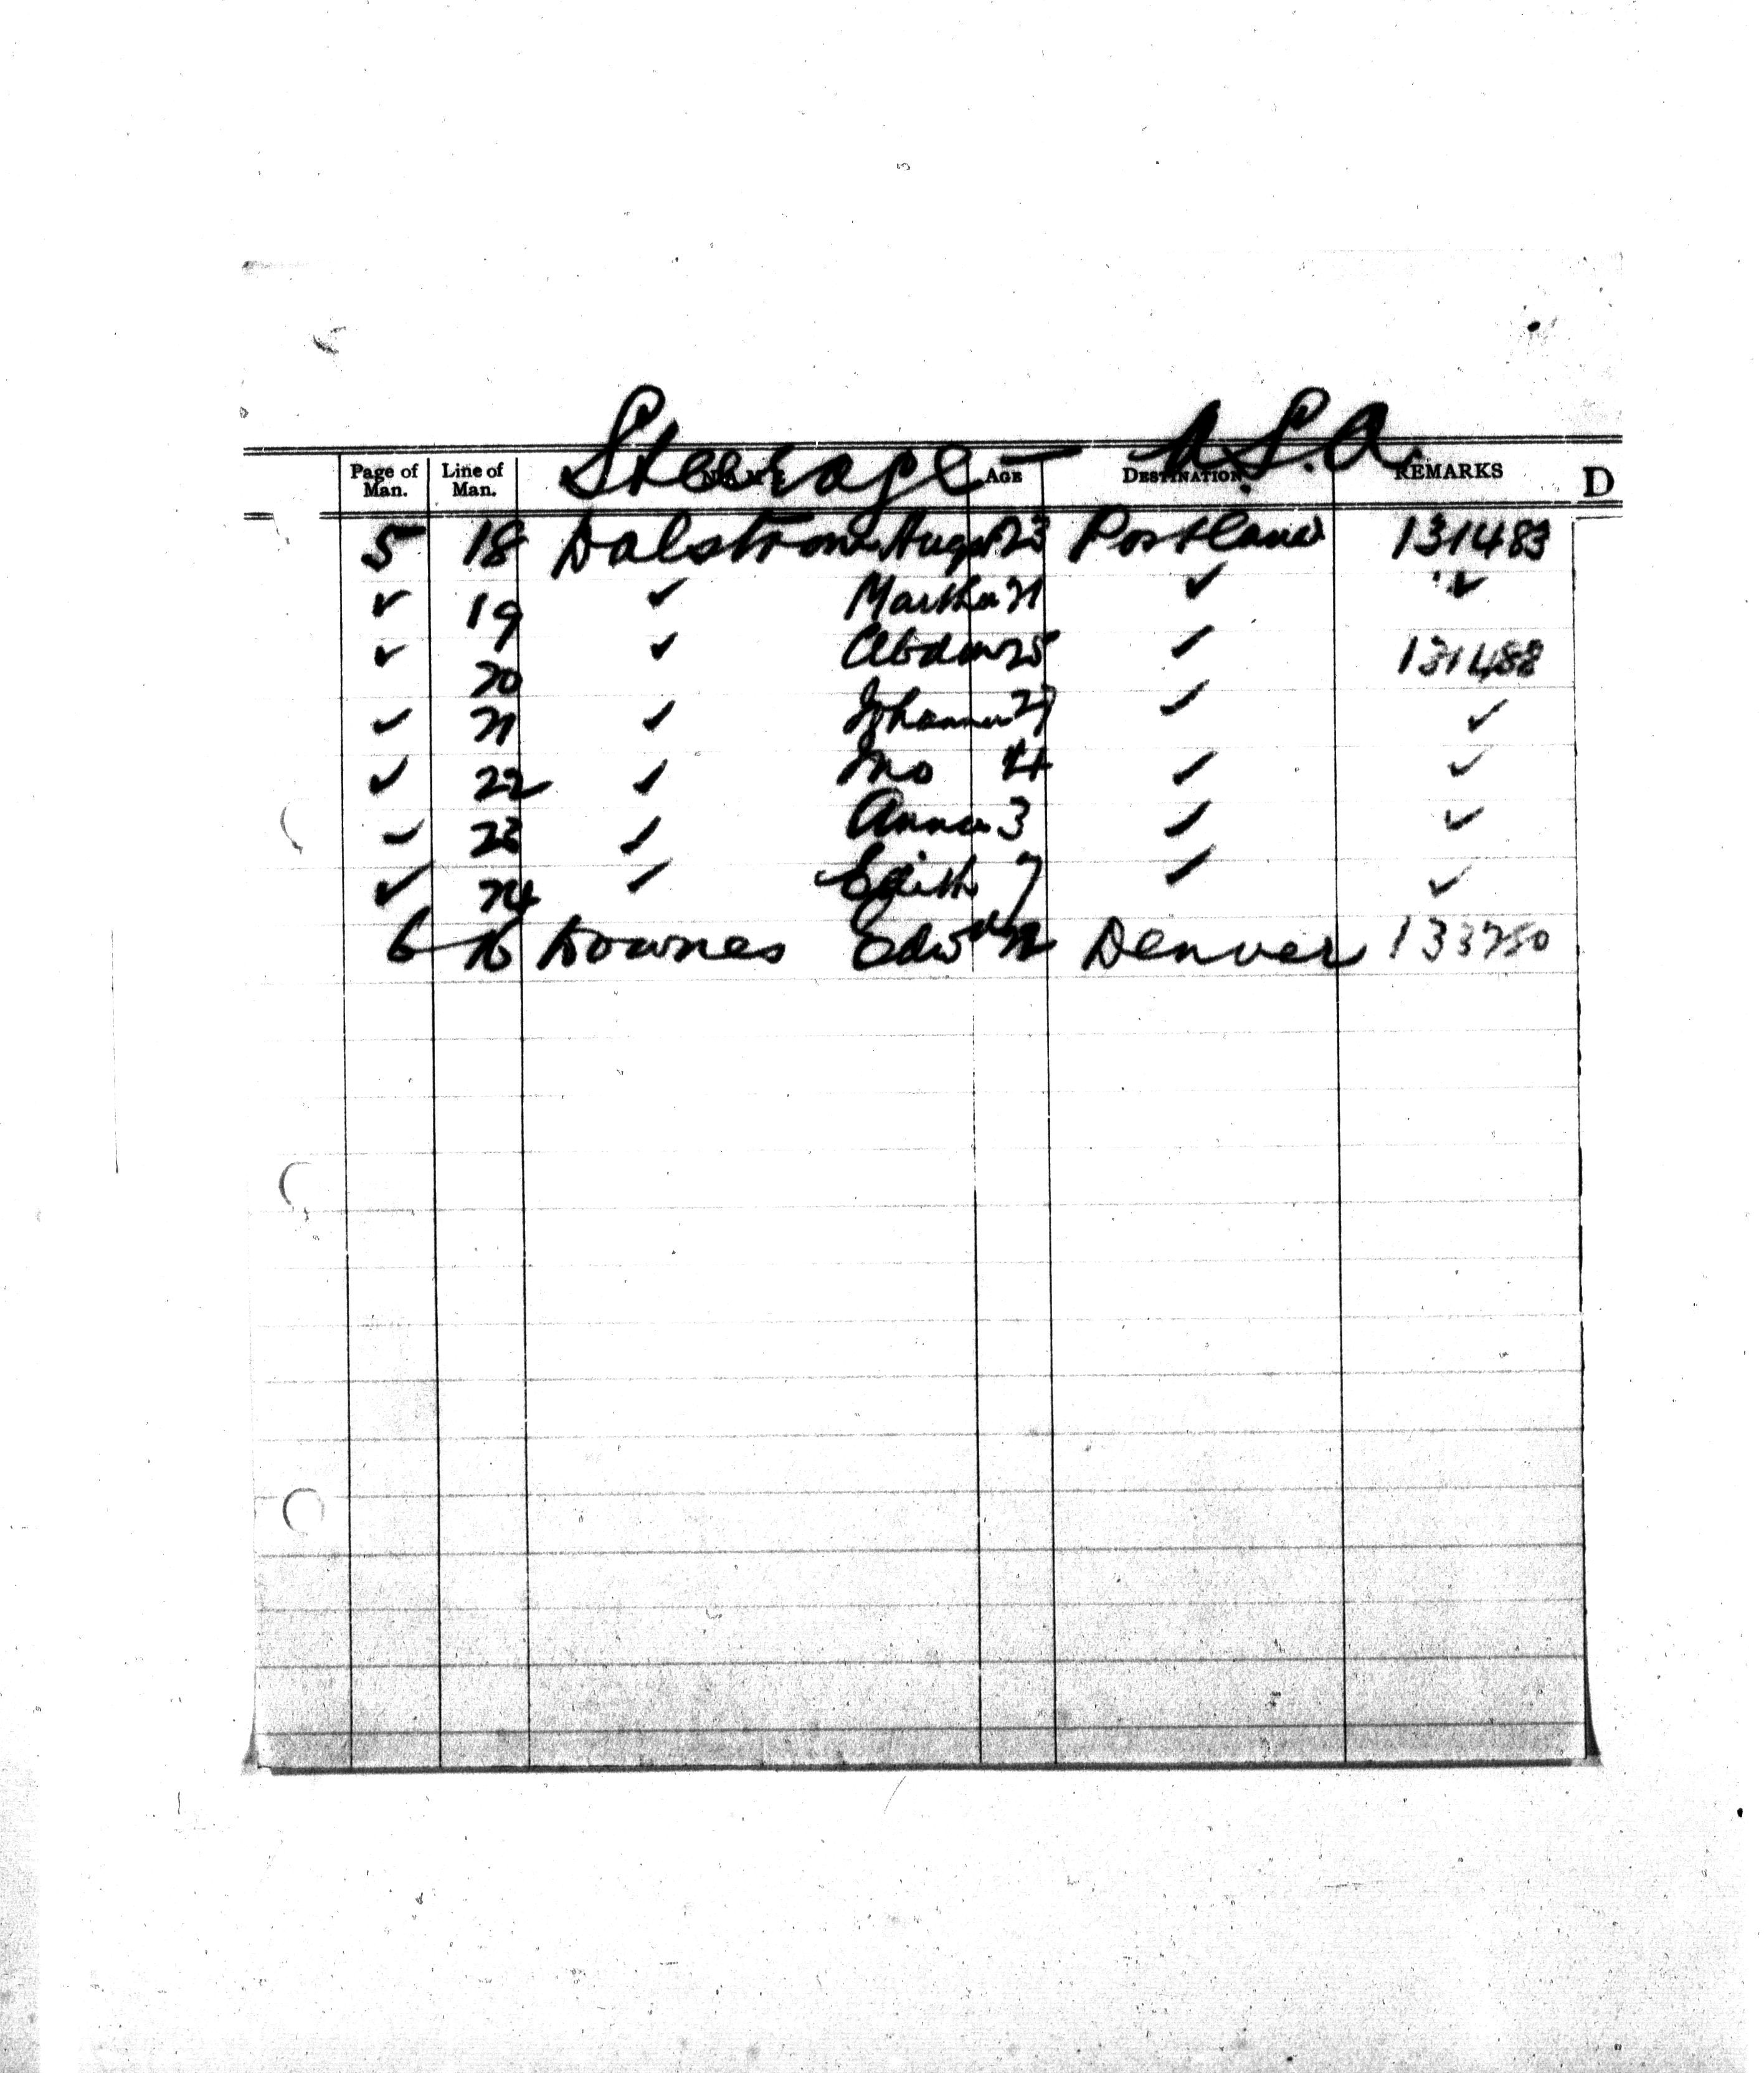 Steerage — U.S.A.
Page of Man. Line of Man. NAME AGE DESTINATION REMARKS D
5 18 Dalstrom August 23 Portland 131483
✓ 19 ✓ Martha 21 ✓ ✓
✓ 20 ✓ 25 ✓ 131488
✓ 21 ✓ Johanna 27 ✓ ✓
✓ 22 ✓ Jno 4 ✓ ✓
✓ 23 ✓ Anna 3 ✓ ✓
✓ 24 ✓ Edith 7 ✓ ✓
6 Downes Edwd Denver 133750